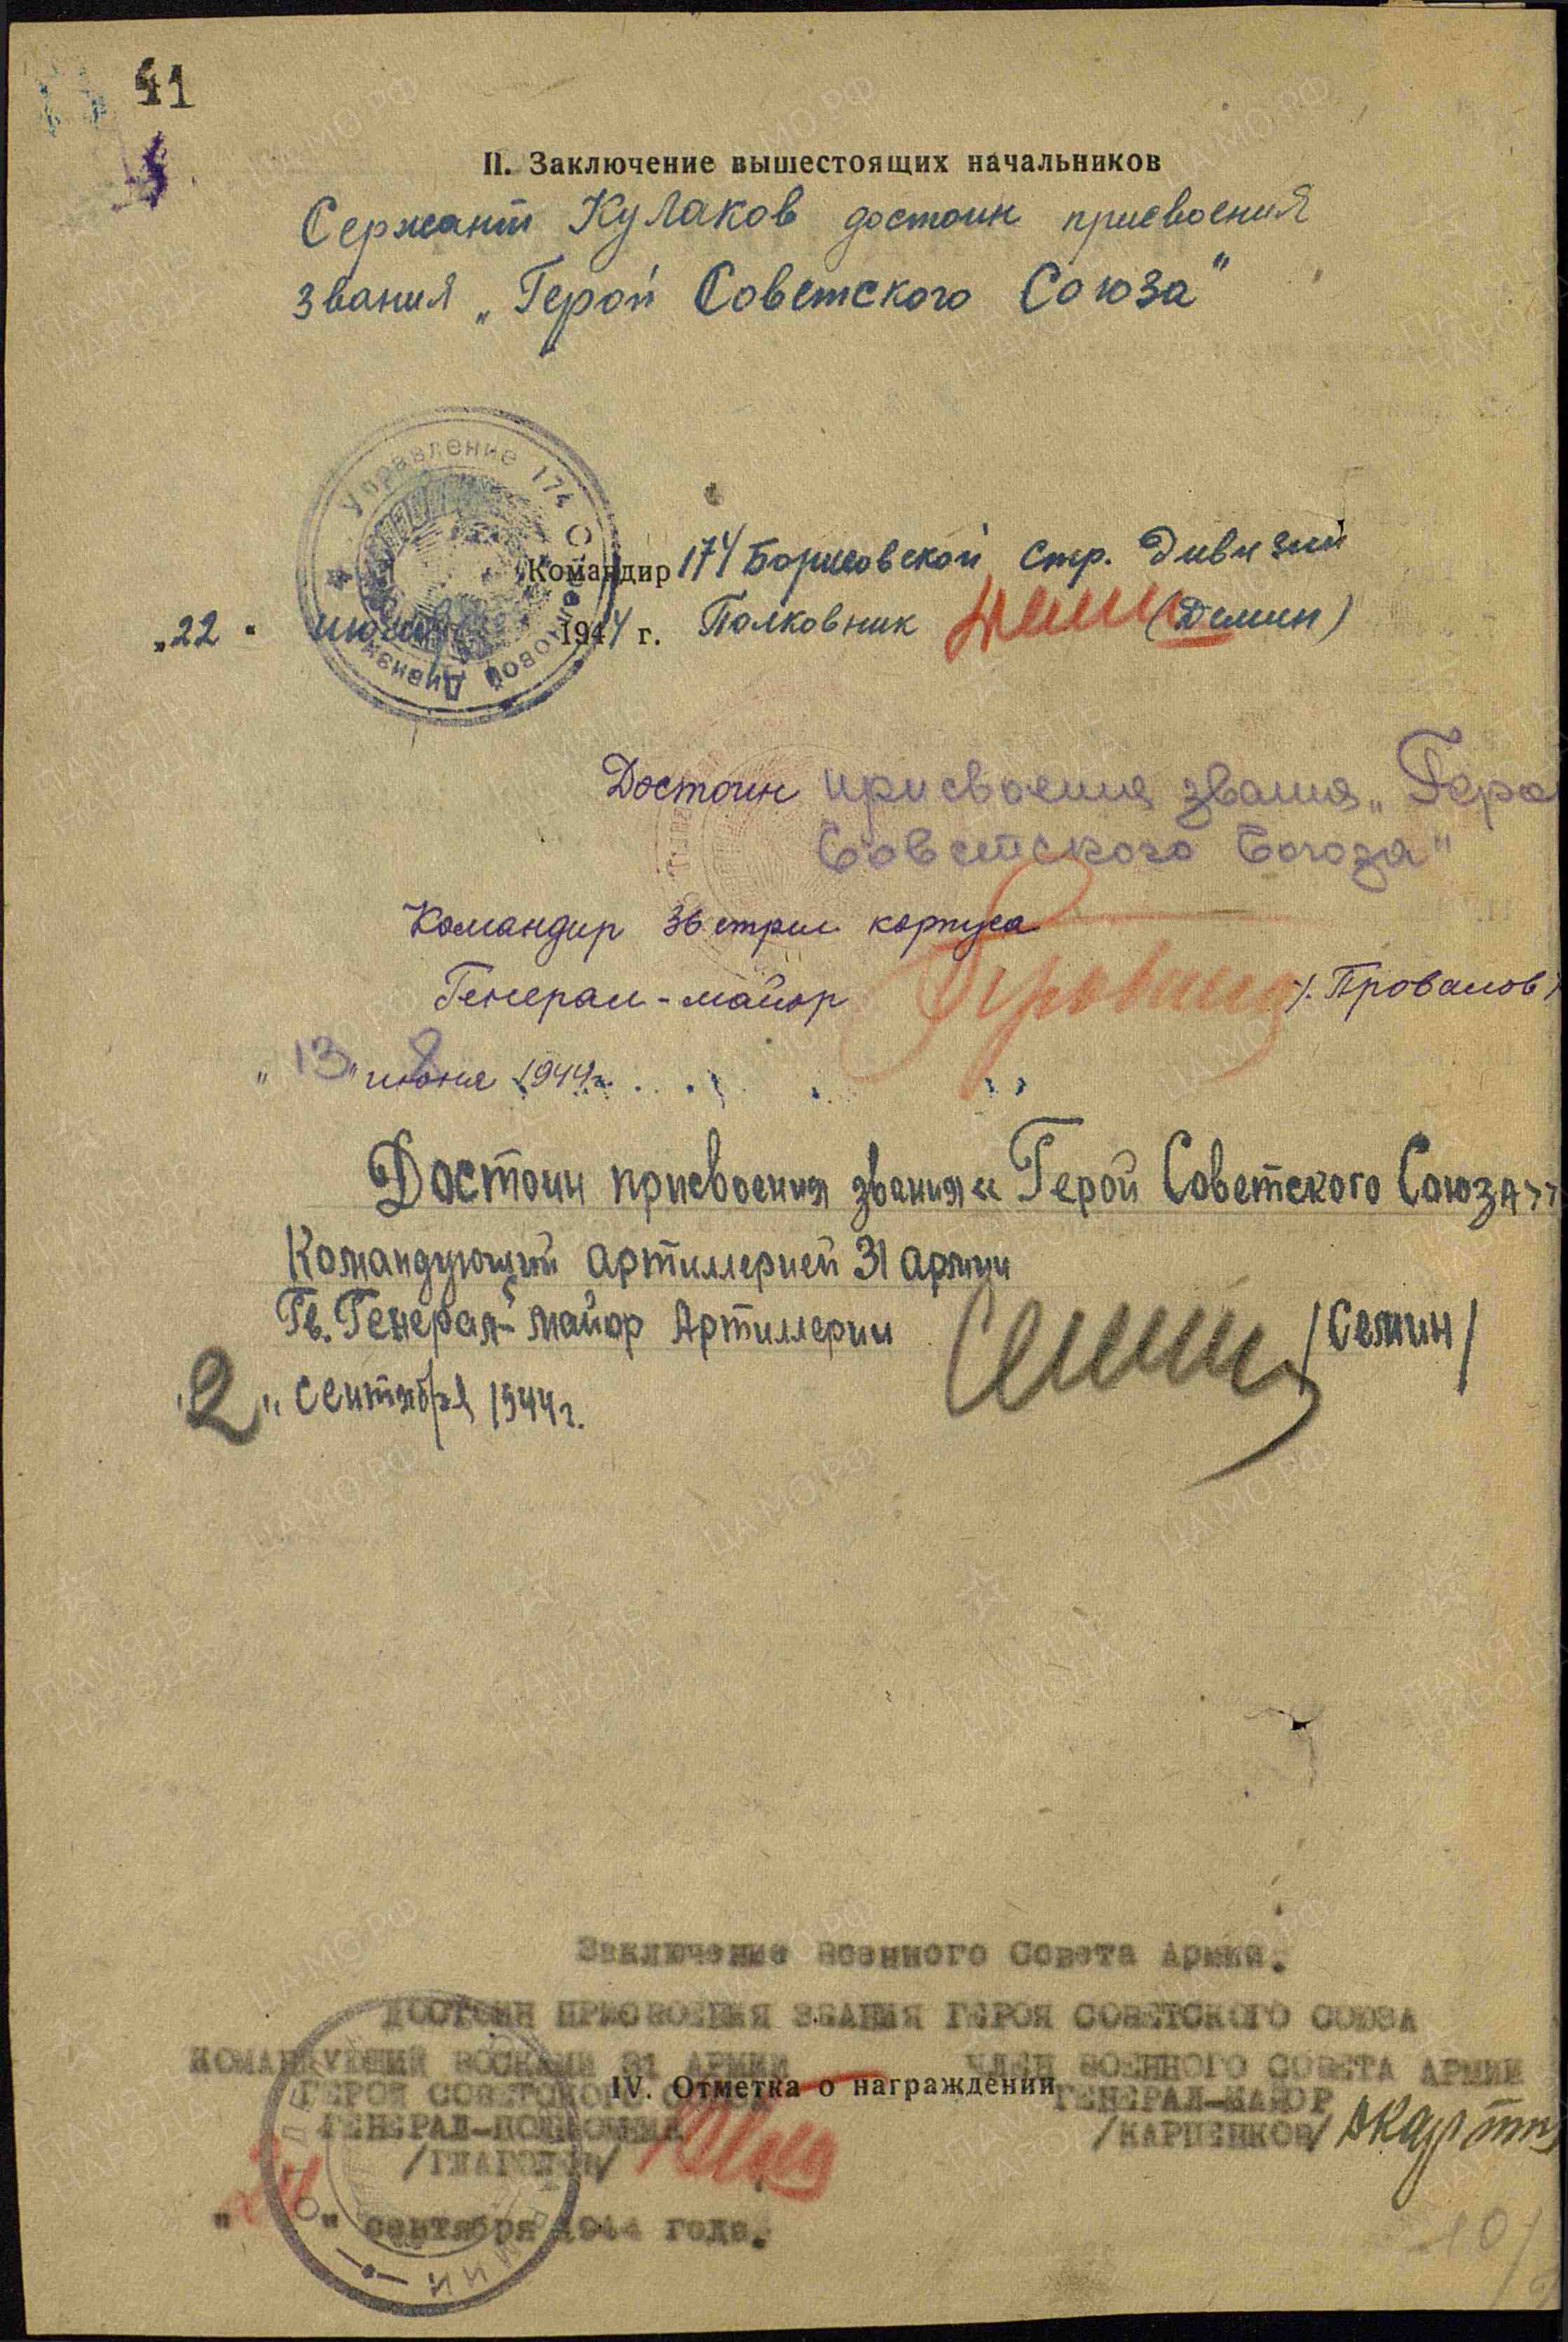 41
II. Заключение вышестоящих начальников
Сержант Кулаков достоин присвоения
звания „Герой Советского Союза"
Управление 174 Стрелковой Дивизии
Командир 174 Борисовской Стр. Дивизии
„22" 1944 г. Полковник (Демин)
Достоин присвоения звания „Геро
Советского Союза"
Командир 36 стрел. корпуса
Генерал-майор /Провалов/
"13" 1944г.
Достоин присвоения звания «Герой Советского Союза»
Командующий артиллерией 31 армии
Гв. Генерал-майор Артиллерии /Семин/
"2" сентября 1944г.
Заключение Военного Совета Армии.
ДОСТОИН ПРИСВОЕНИЯ ЗВАНИЯ ГЕРОЯ СОВЕТСКОГО СОЮЗА
КОМАНДУЮЩИЙ ВОЙСКАМИ 31 АРМИИ ЧЛЕН ВОЕННОГО СОВЕТА АРМИИ
IV. Отметка о награждении
ГЕРОЯ СОВЕТСКОГО СОЮЗА ГЕНЕРАЛ-МАЙОР
ГЕНЕРАЛ-ПОЛКОВНИК /КАРПЕНКОВ/
/ГЛАГОЛЕВ/
" " сентября 1944 года.
ЦАМО.РФ
ПАМЯТЬ НАРОДА